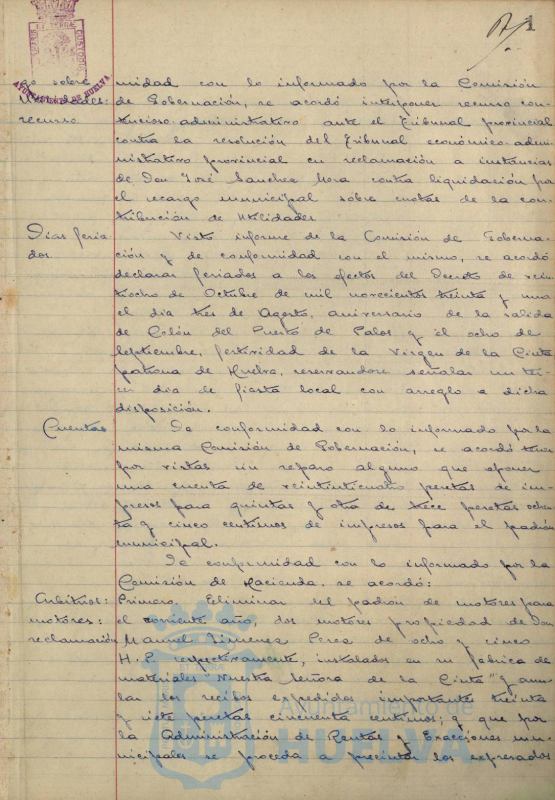 1
AYUNTAMIENTO DE HUELVA
go sobre
Utilidades:
recurso
midad con lo informado por la Comisión
de Gobernación, se acordó interponer recurso con-
tencioso-administrativo ante el Tribunal provincial
contra la resolución del Tribunal económico-admi-
nistrativo provincial en reclamación a instancias
de Don José Sanchez Mora contra liquidación por
el recargo municipal sobre cuotas de la con-
tribución de Utilidades
Dias feria-
dos.
Visto informe de la Comisión de Goberna-
ción y de conformidad con el mismo, se acordó
declarar feriados a los efectos del Decreto de vein-
tiocho de Octubre de mil novecientos treinta y uno
el dia tres de Agosto, aniversario de la salida
de Colón del Puerto de Palos y el ocho de
Septiembre, festividad de la Virgen de la Cinta
patrona de Huelva, reservandose señalar un ter-
cer dia de fiesta local con arreglo a dicha
disposición.
Cuentas
De conformidad con lo informado por la
misma Comisión de Gobernación, se acordó tener
por vistas sin reparo alguno que oponer
una cuenta de veinticuatro pesetas de im-
presos para quintas y otra de trece pesetas ochen-
ta y cinco centimos de impresos para el padrón
municipal.
De conformidad con lo informado por la
Comisión de Hacienda, se acordó:
Arbitrios:
motores:
reclamación
Primero. Eliminar del padrón de motores para
el corriente año, dos motores propiedad de Don
Manuel Jimenez Perea de ocho y cinco
H.P. respectivamente, instalados en su fabrica de
materiales "Nuestra Señora de la Cinta" y anu-
lar los recibos expedidos importante treinta
y siete pesetas cincuenta centimos; y que por
la Administración de Rentas y Exacciones mu-
nicipales se proceda a precintar los expresados
Ayuntamiento de
HUELVA